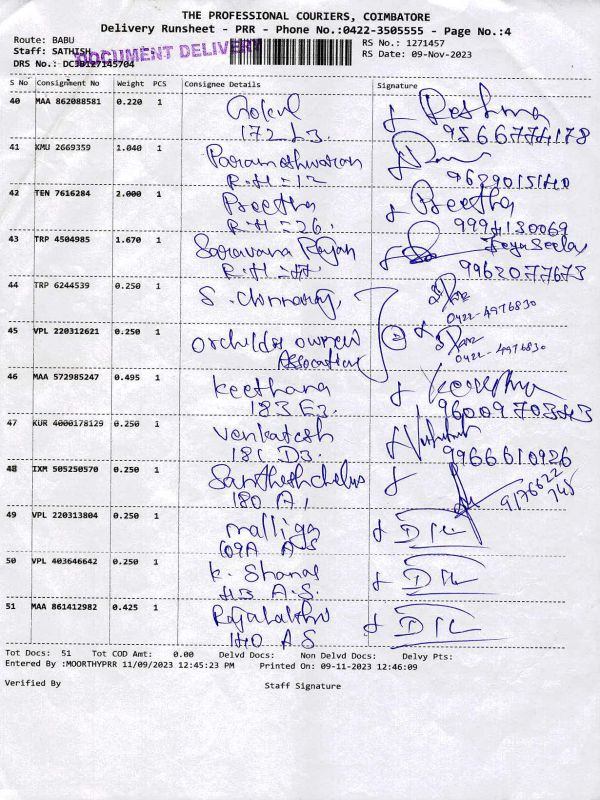 THE PROFESSIONAL COURIERS, COIMBATORE
Delivery Runsheet - PRR - Phone No.:0422-3505555 - Page No.:4
Route: BABU
RS No.: 1271457
Staff: SATHISH
DOCUMENT DELIVERY
RS Date: 09-Nov-2023
DRS No.: DC30127145704
S No Consignment No Weight PCS Consignee Details Signature
40 MAA 862088581 0.220 1 Gokul Reshma
172 L3. 9566774178
41 KMU 2669359 1.040 1 Parameshwaran
R.H = 12 9629015140
42 TEN 7616284 2.000 1 Preetha Preetha
R.H = 26. 9994130069
43 TRP 4504985 1.670 1 Saravana Rajan Jeya Seela
R.H = 9962077673
44 TRP 6244539 0.250 1 S.
0422-4976830
45 VPL 220312621 0.250 1 orchids owners 2
Association 0422-4976830
46 MAA 572985247 0.495 1 Keethana
183 E3. 9600970343
47 KUR 4000178129 0.250 1 Venkatesh
181 D3. 9966610926
48 IXM 505250570 0.250 1
180 A1 9176622
49 VPL 220313804 0.250 1 malliga
109A A5
50 VPL 403646642 0.250 1 K.
113 A.5
51 MAA 861412982 0.425 1
110 A5
Tot Docs: 51 Tot COD Amt: 0.00 Delvd Docs: Non Delvd Docs: Delvy Pts:
Entered By :MOORTHYPRR 11/09/2023 12:45:23 PM Printed On: 09-11-2023 12:46:09
Verified By Staff Signature